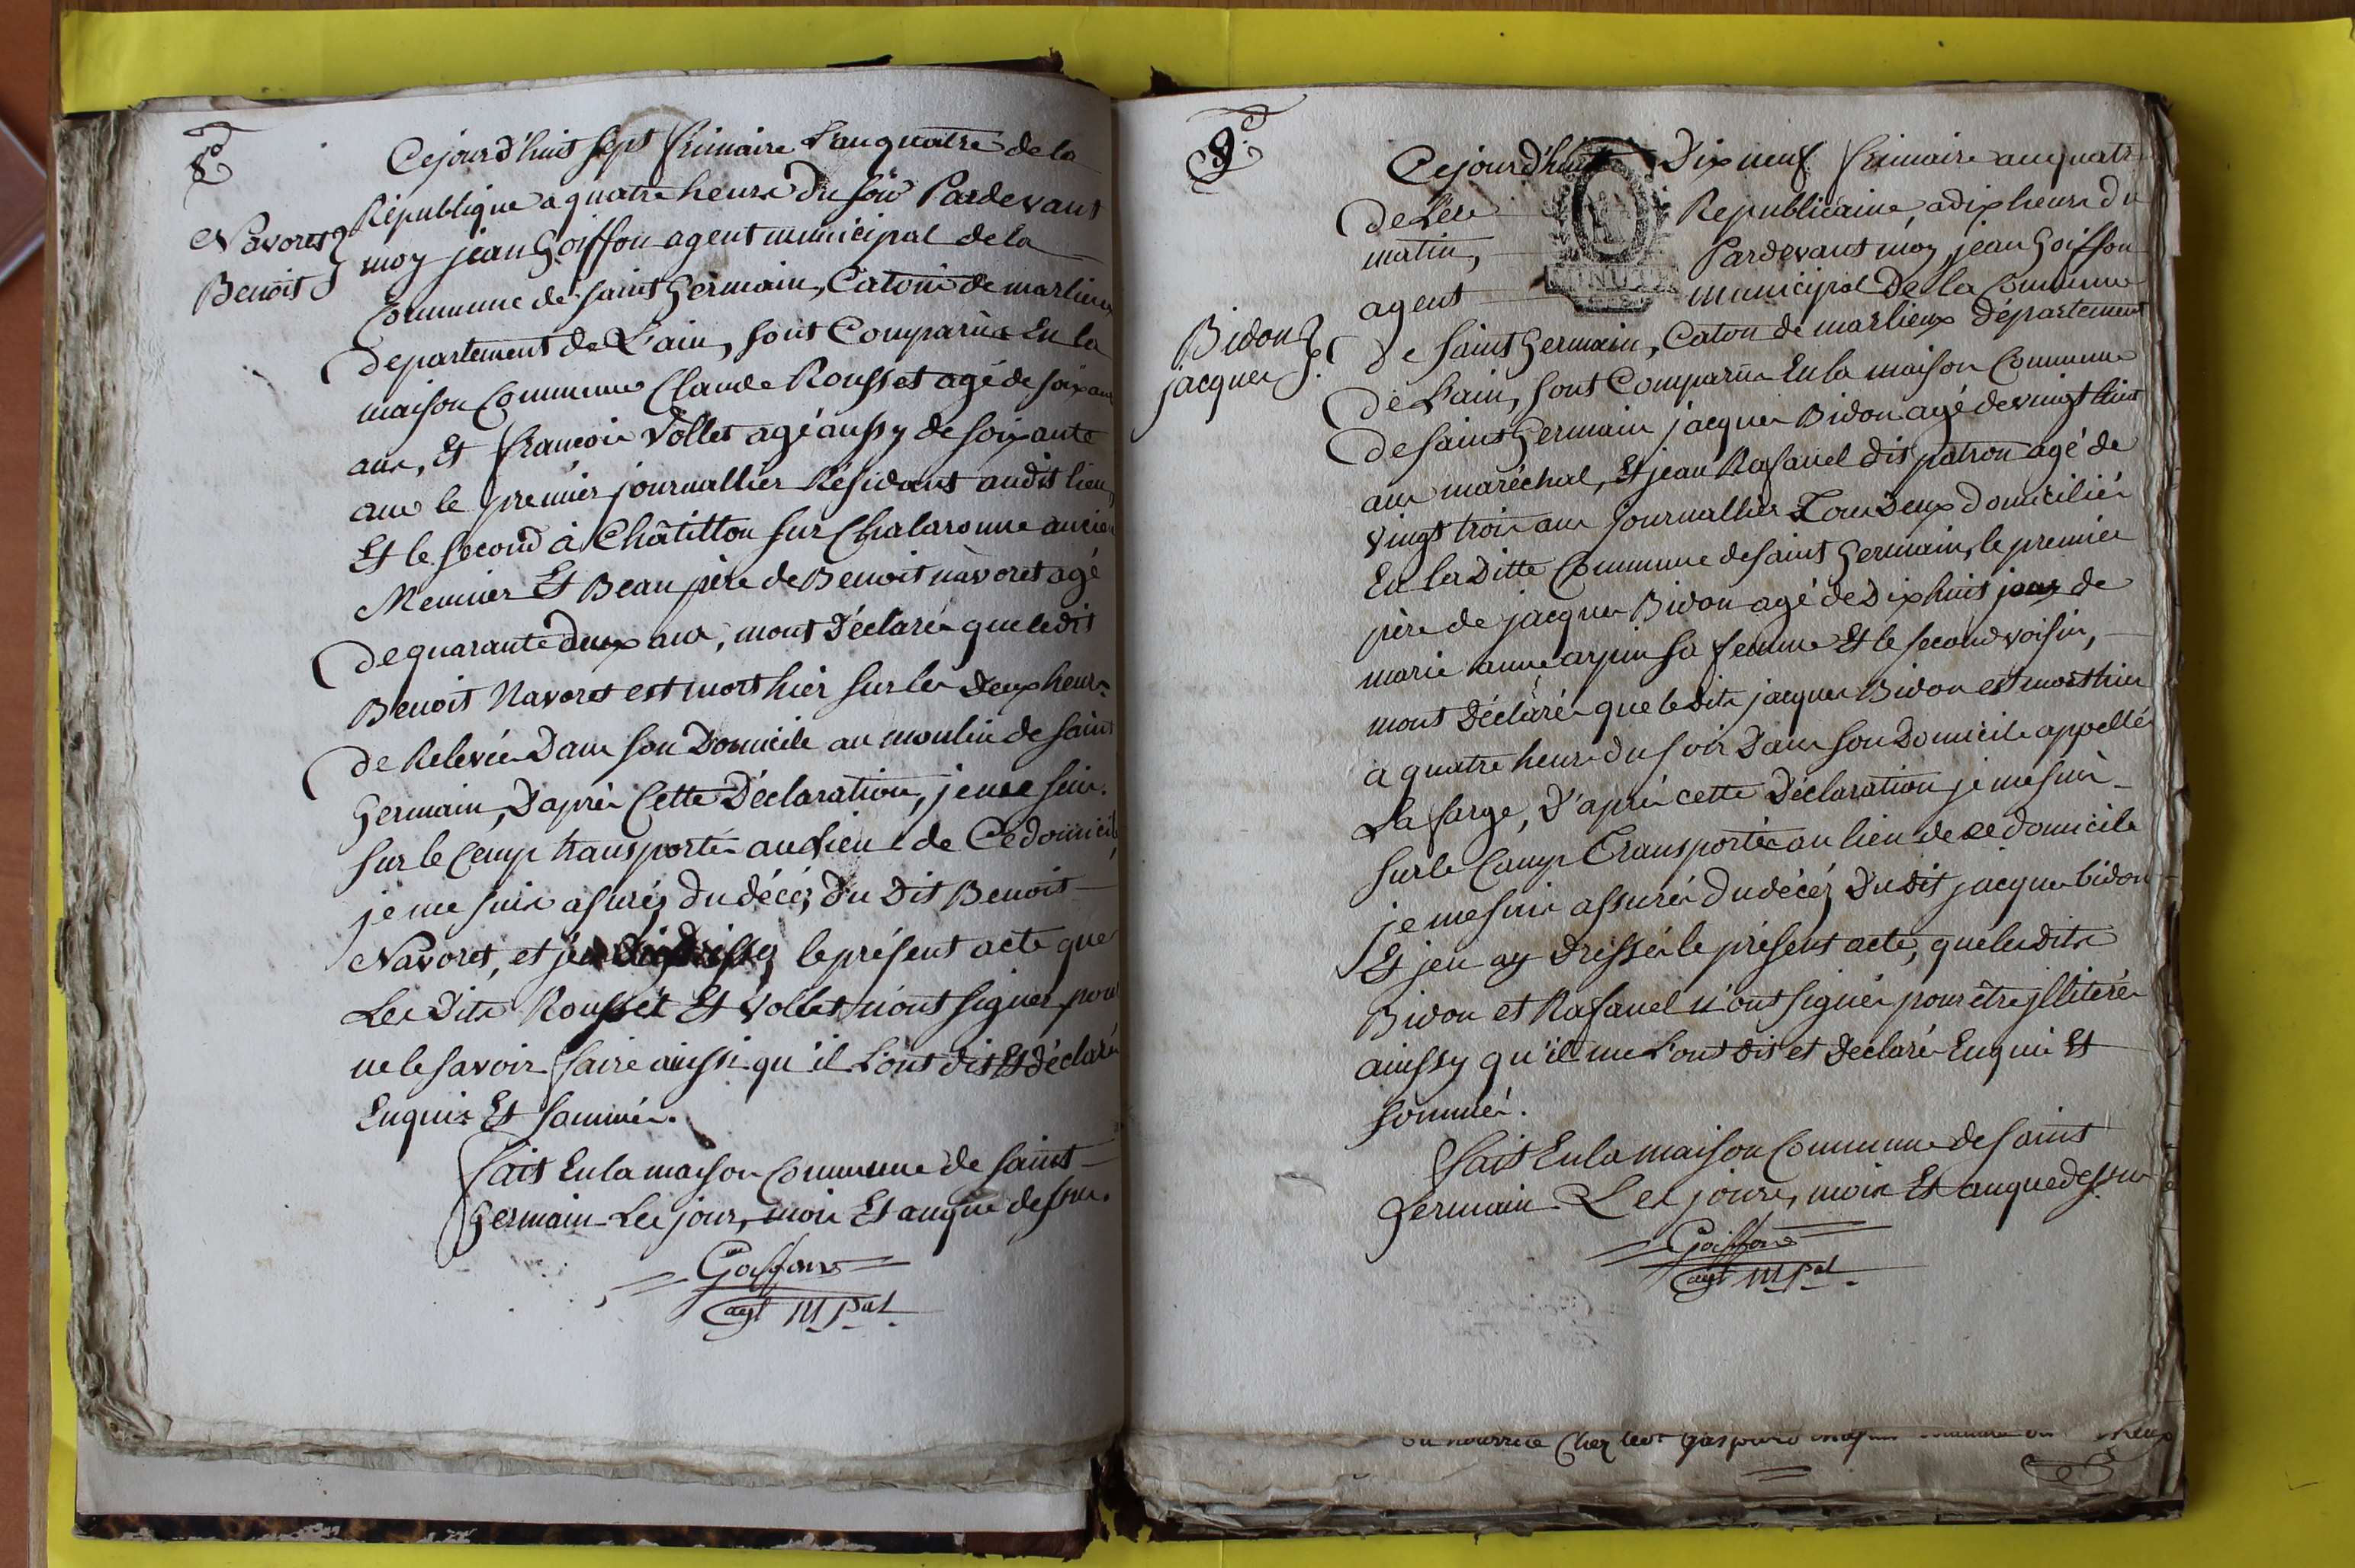 8e
Navoret
Benoit
Cejourd'huit sept frimaire L'an quatre de la
République a quatre heure du soir Pardevant
moy jean Goiffon agent municipal de la
Commune de saint Germain, Caton de marlieux
departement de L'ain, sont Comparus En la
maison Commune Claude Rousset agé de soixante
ans, Et francois Vollet agé aussy de soixante
ans le premier journallier Résidant audit lieu,
Et le second à Châtillon sur Chalaronne ancien
Meunier Et Beau père de Benoit navoret agé
de quarante deux ans, mont Déclarés que ledit
Benoit Navoret est mort hier sur les Deux heures
de Relevée Dans son Domicile au moulin de saint
Germain, D'après Cette Déclaration, je me suis
sur le Cemp transportés au Lieu de Ce domicile
je me suis asurés du décéz du Dit Benoit
Navoret, et j'en le présent acte que
Les Dits Rousset Et Vollet n'ont signer pour
ne le savoir faire ainssi qu'il L'ont dit Et déclaré
Enquis Et sommés.
fait En la maison Commune de saint
Germain Les jour, mois Et an que dessus.
Goiffon
agt Mpal
9e
Bidon
jacques
Cejourd'huit Dix neuf frimaire an quatre
de L'ere Republicaine, a dix heure du
matin, Pardevant moy jean Goiffon
agent municipal De la Commune
de saint Germain, Caton de marlieux département
de L'ain, sont Comparus En la maison Commune
de saint Germain jacques Bidon agé de vingt huit
ans maréchal, Et jean Rafanel dit patron agé de
vingt trois ans journallier Tous Deux domiciliés
En la Ditte Commune de saint Germain, le premier
père de jacques Bidon agé de Dix huit jours de
marie anne arpin sa femme Et le second voisin,
mont Déclarés que le Dits jacques Bidon est mort hier
a quatre heure du soir Dans son Domicile appellé
La farge, D'après cette Déclaration je me suis
sur le Camp Transportés au lieu de ce domicile
je me suis assurés du décéz Du dit jacques bidon
Et jen ay Dressés le présent acte, que les Dits
Bidon et Rafanel n'ont signés pour être jllitérés
ainssy qu'il me L'ont dit et Declarés Enquis Et
sommés.
fait En la maison Commune de saint
Germain Les jours, mois Et an que dessus
Goiffon
agt Mpal